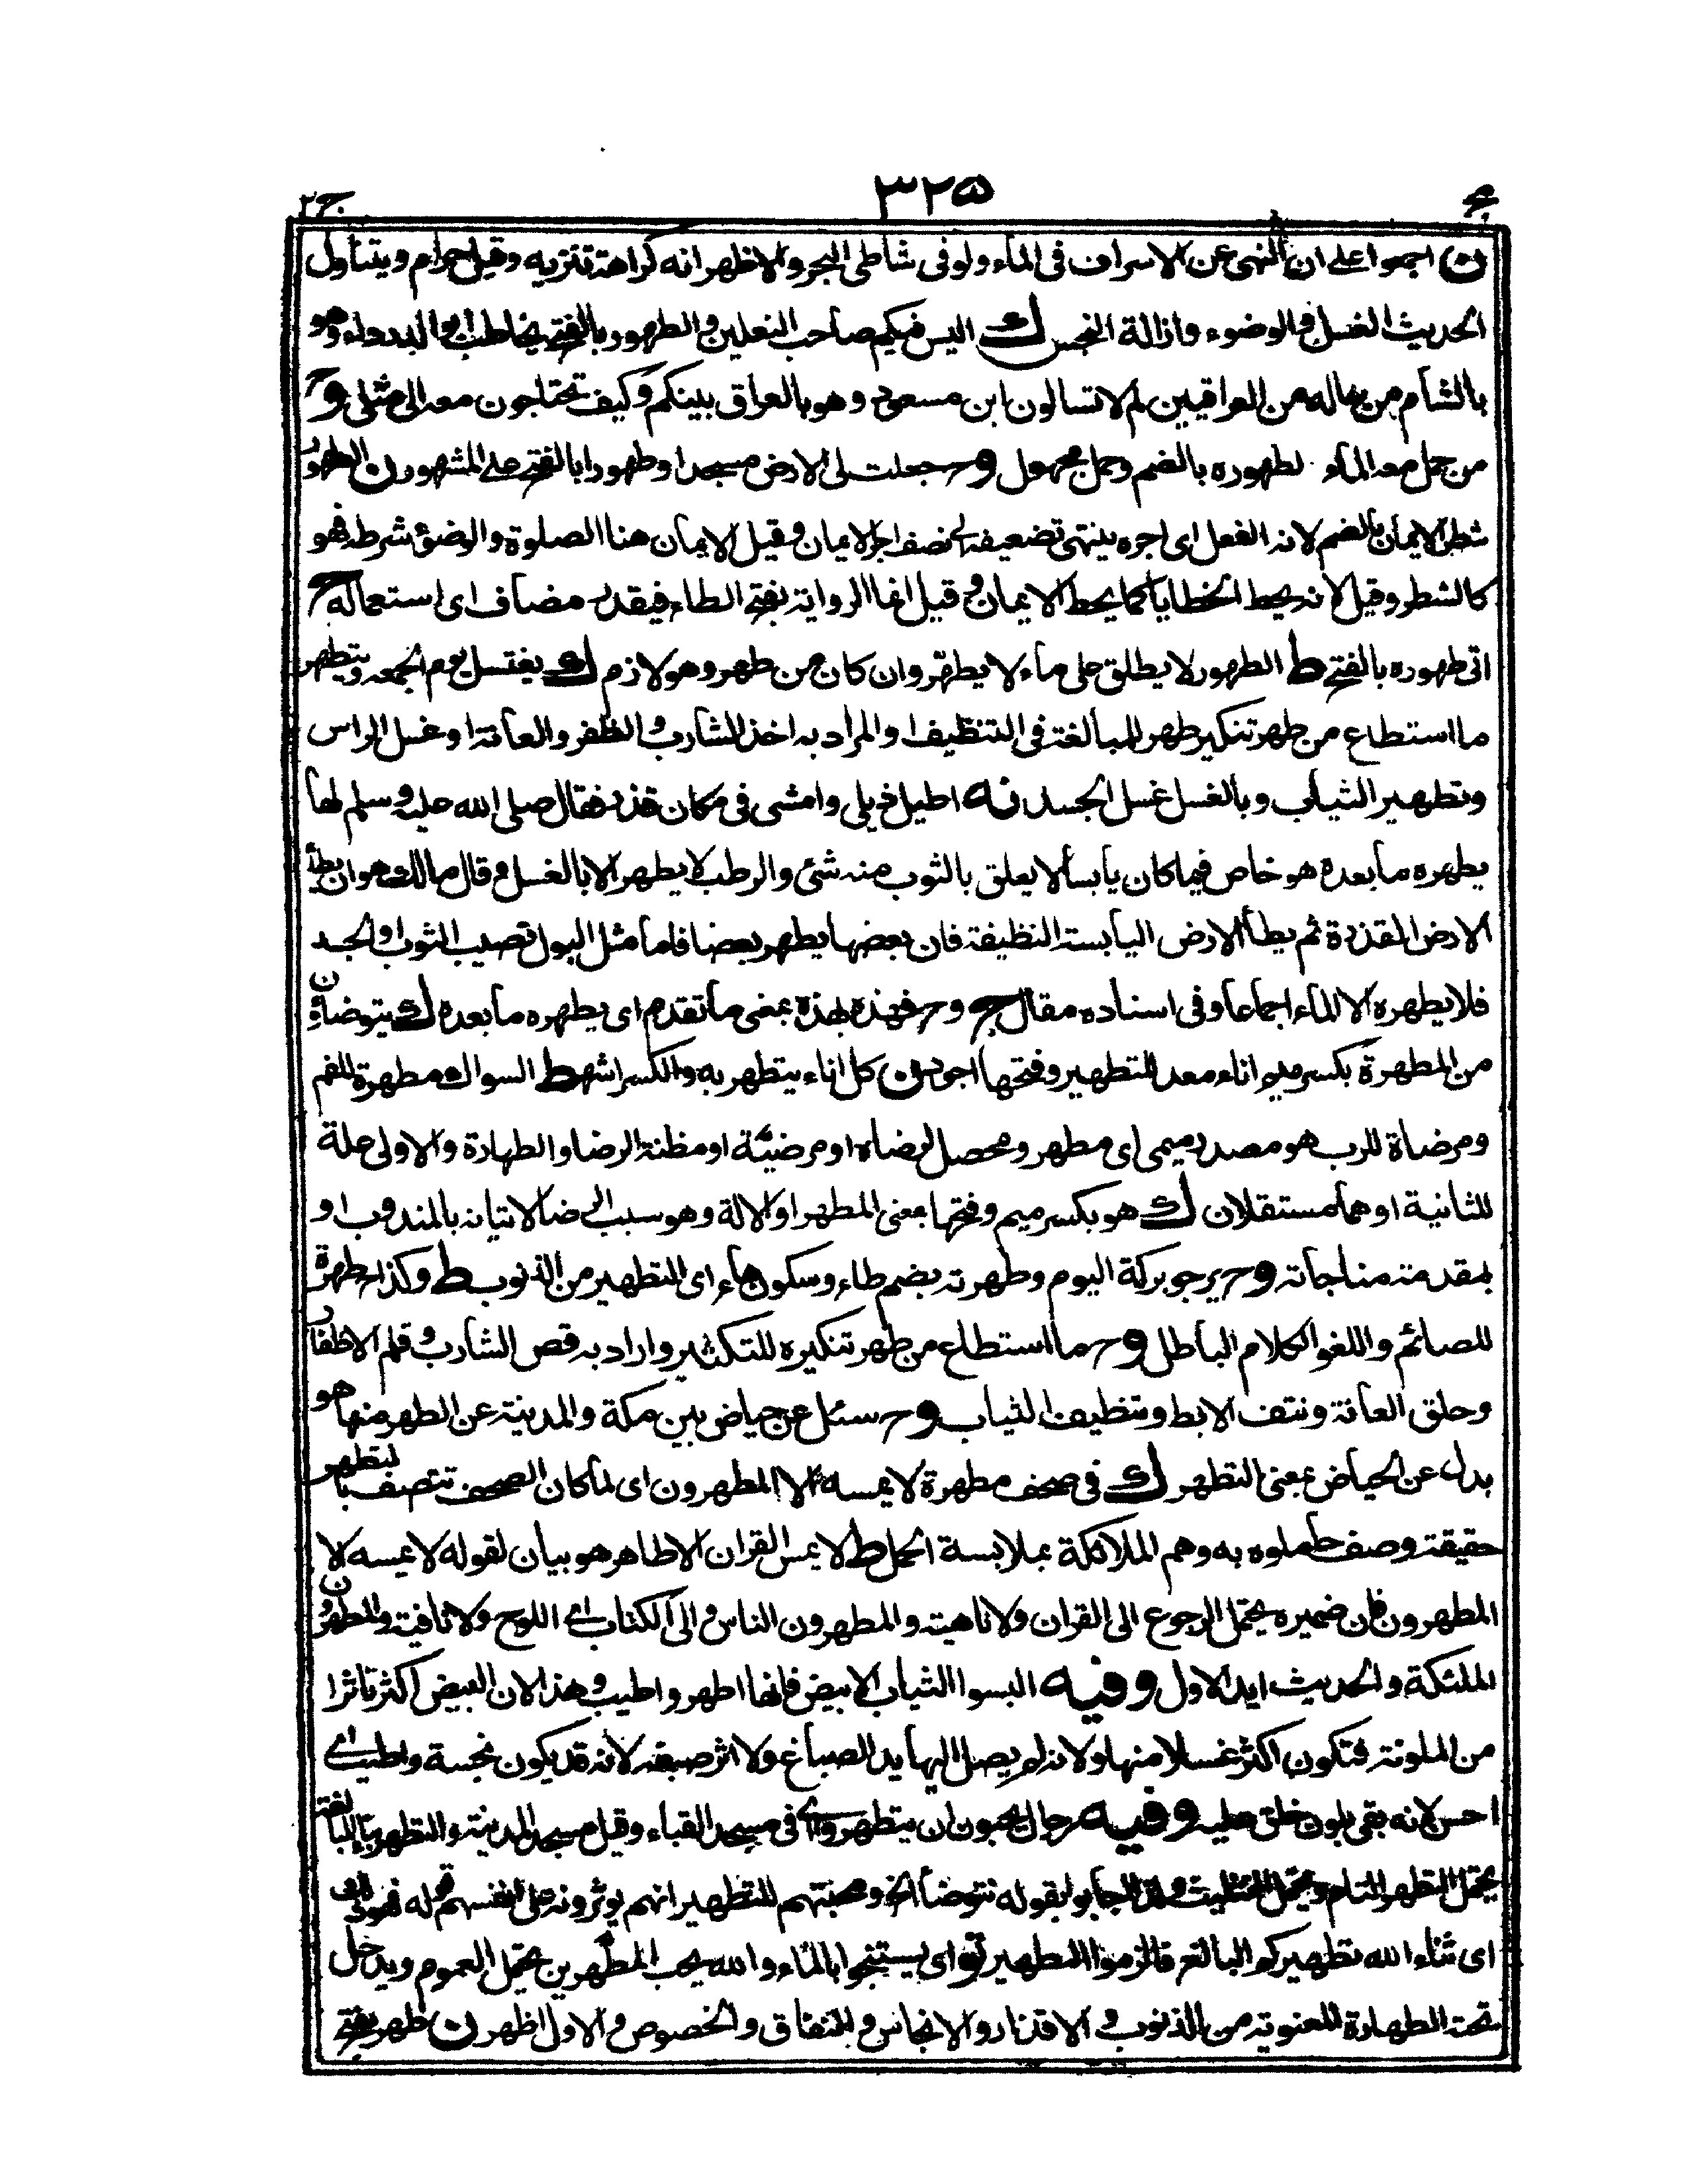 ج ٣٢٥ ج٢
ن اجمعوا على ان النهى عن الاسراف فى الماء ولو فى شاطى البحر والاظهر انه كراهة تنزيه وقيل حرام ويتناول
الحديث الغسل والوضوء وازالة النجس ك اليس فيكم صاحب النعلين والطهور بالفتح يخاطب ابو الدرداء وهو
بالشام من يساله من العراقيين لم لا تسالون ابن مسعود وهو بالعراق بينكم وكيف تحتاجون معه الى مثلى وح
من حمل معه الماء لطهوره بالضم وحمل مجهول وح جعلت لى الارض مسجدا وطهورا بالفتح على المشهور ن الطهور
شطر الايمان بالضم لانه الفعل اى اجره ينتهى تضعيفه الى نصف اجر الايمان وقيل الايمان هنا الصلوة والوضوء شرطه فهو
كالشطر وقيل لانه يحط الخطايا كما يحط الايمان وقيل انما الرواية بفتح الطاء فيقدر مضاف اى استعماله ح
اتى طهوره بالفتح ط الطهور لا يطلق على ماء لا يطهر وان كان من طهر وهو لازم ك يغتسل يوم الجمعه ويتطهر
ما استطاع من طهر تنكير طهر للمبالغة فى التنظيف او المراد به اخذ الشارب والظفر والعانة او غسل الراس
وتطهير الثياب وبالغسل غسل الجسد نه اطيل ذيلى وامشى فى مكان قذر فقال صلى الله عليه وسلم لها
يطهره ما بعده هو خاص فيما كان يابسا لا يعلق بالثوب منه شئ والرطب لا يطهر الا بالغسل وقال مالك هو ان يطأ
الارض القذرة ثم يطأ الارض اليابسة النظيفة فان بعضها يطهر بعضا فاما مثل البول تصيب الثوب او الجسد
فلا يطهره الا الماء اجماعا وفى اسناده مقال ج وح فهذه بهذه بمعنى ما تقدم اى يطهره ما بعده ك يتوضأون
من المطهرة بكسر ميم اناء معد للتطهير وفتحها اجود ن كل اناء يتطهر به والكسر اشهر ط السواك مطهرة للفم
ومرضاة للرب هو مصدر ميمى اى مطهر ومحصل لرضاه او مرضيّة او مظنة الرضا والطهارة والاولى علة
للثانية او هما مستقلان ك هو بكسر ميم وفتحها بمعنى المطهر او الالة وهو سبب الرضا لاتيانه بالمندوب او
بمقدمة مناجاته وح يرجو بركة اليوم وطهرته بضم طاء وسكون هاء اى التطهير من الذنوب ط وكذا ح طهرة
للصائم واللغو الكلام الباطل وح ما استطاع من طهر تنكيره للتكثير واراد به قص الشارب وقلم الاظفار
وحلق العانة ونتف الابط وتنظيف الثياب وح سئل عن حياض بين مكة والمدينة عن الطهر منها هو
بدل عن الحياض بمعنى التطهر ك فى صحف مطهرة لا يمسه الا المطهرون اى لما كان الصحف تتصف بالتطهر
حقيقة وصف حاملوه به وهم الملائكة بملابسة الحمل ط لا يمس القران الا طاهر هو بيان لقوله لا يمسه الا
المطهرون فان ضميره يحتمل الرجوع الى القران ولا ناهية والمطهرون الناس والى الكتاب اى اللوح ولا نافية والمطهرون
الملئكة والحديث ايد الاول وفيه البسوا الثياب الابيض فانها اطهر واطيب وهذا لان البيض اكثر تاثرا
من الملونة فتكون اكثر غسلا منها ولانه لم يصل اليها يد الصباغ ولا اثر صبغه لانه قد يكون نجسة واطيب اى
احسن لانه بقى بلون خلق عليه وفيه رجال يحبون ان يتطهروا اى فى مسجد القباء وقيل مسجد المدينة والتطهر بالمبالغة
يحتمل التطهر التام ويحتمل التثليث ولذا اجابوا بقوله نتوضأ الخ ومحبتهم للتطهير انهم يوثرونه على انفسهم قوله فهو ذاك
اى ثناء الله تطهيركم البالغ فالزموا التطهير تو اى يستنجوا بالماء والله يحب المطهرين يحتمل العموم ويدخل
تحته الطهارة المعنوية من الذنوب والاقذار والانجاس والنفاق والخصوص والاول اظهر ن طهر بفتح